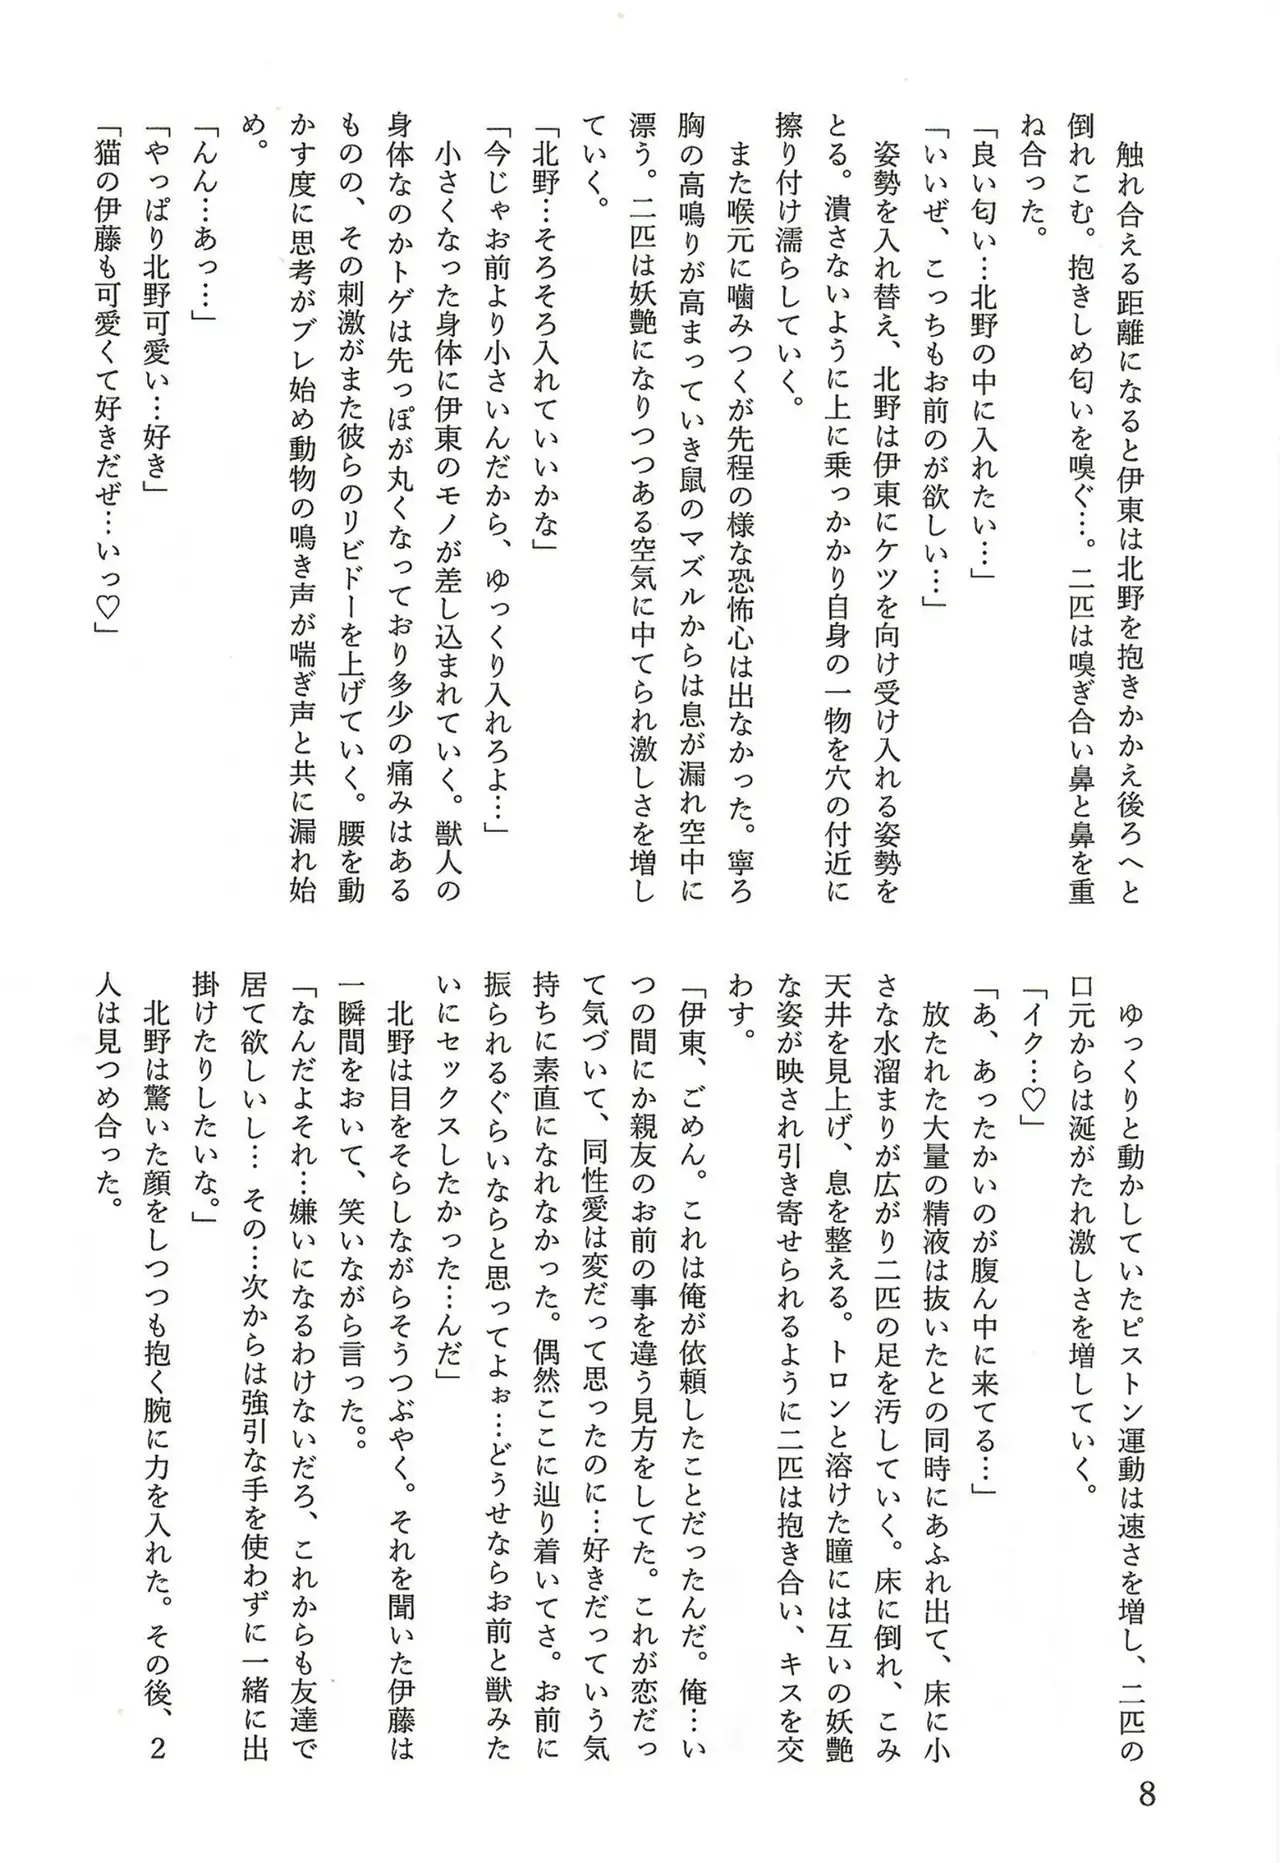 触れ合える距離になると伊東は北野を抱きかかえ後ろへと
倒れこむ。抱きしめ匂いを嗅ぐ…。二匹は嗅ぎ合い鼻と鼻を重
ね合った。
「良い匂い…北野の中に入れたい…」
「いいぜ、こっちもお前のが欲しい…」
姿勢を入れ替え、北野は伊東にケツを向け受け入れる姿勢を
とる。潰さないように上に乗っかかり自身の一物を穴の付近に
擦り付け濡らしていく。
また喉元に噛みつくが先程の様な恐怖心は出なかった。寧ろ
胸の高鳴りが高まっていき鼠のマズルからは息が漏れ空中に
漂う。二匹は妖艶になりつつある空気に中てられ激しさを増し
ていく。
「北野…そろそろ入れていいかな」
「今じゃお前より小さいんだから、ゆっくり入れろよ…」
小さくなった身体に伊東のモノが差し込まれていく。獣人の
身体なのかトゲは先っぽが丸くなっており多少の痛みはある
ものの、その刺激がまた彼らのリビドーを上げていく。腰を動
かす度に思考がブレ始め動物の鳴き声が喘ぎ声と共に漏れ始
め。
「んん…あっ…」
「やっぱり北野可愛い…好き」
「猫の伊藤も可愛くて好きだぜ…いっ♡」
ゆっくりと動かしていたピストン運動は速さを増し、二匹の
口元からは涎がたれ激しさを増していく。
「イク…♡」
「あ、あったかいのが腹ん中に来てる…」
放たれた大量の精液は抜いたとの同時にあふれ出て、床に小
さな水溜まりが広がり二匹の足を汚していく。床に倒れ、こみ
天井を見上げ、息を整える。トロンと溶けた瞳には互いの妖艶
な姿が映され引き寄せられるように二匹は抱き合い、キスを交
わす。
「伊東、ごめん。これは俺が依頼したことだったんだ。俺…い
つの間にか親友のお前の事を違う見方をしてた。これが恋だっ
て気づいて、同性愛は変だって思ったのに…好きだっていう気
持ちに素直になれなかった。偶然ここに辿り着いてさ。お前に
振られるぐらいならと思ってよぉ…どうせならお前と獣みた
いにセックスしたかった…んだ」
北野は目をそらしながらそうつぶやく。それを聞いた伊藤は
一瞬間をおいて、笑いながら言った。。
「なんだよそれ…嫌いになるわけないだろ、これからも友達で
居て欲しいし… その…次からは強引な手を使わずに一緒に出
掛けたりしたいな。」
北野は驚いた顔をしつつも抱く腕に力を入れた。その後、2
人は見つめ合った。
8